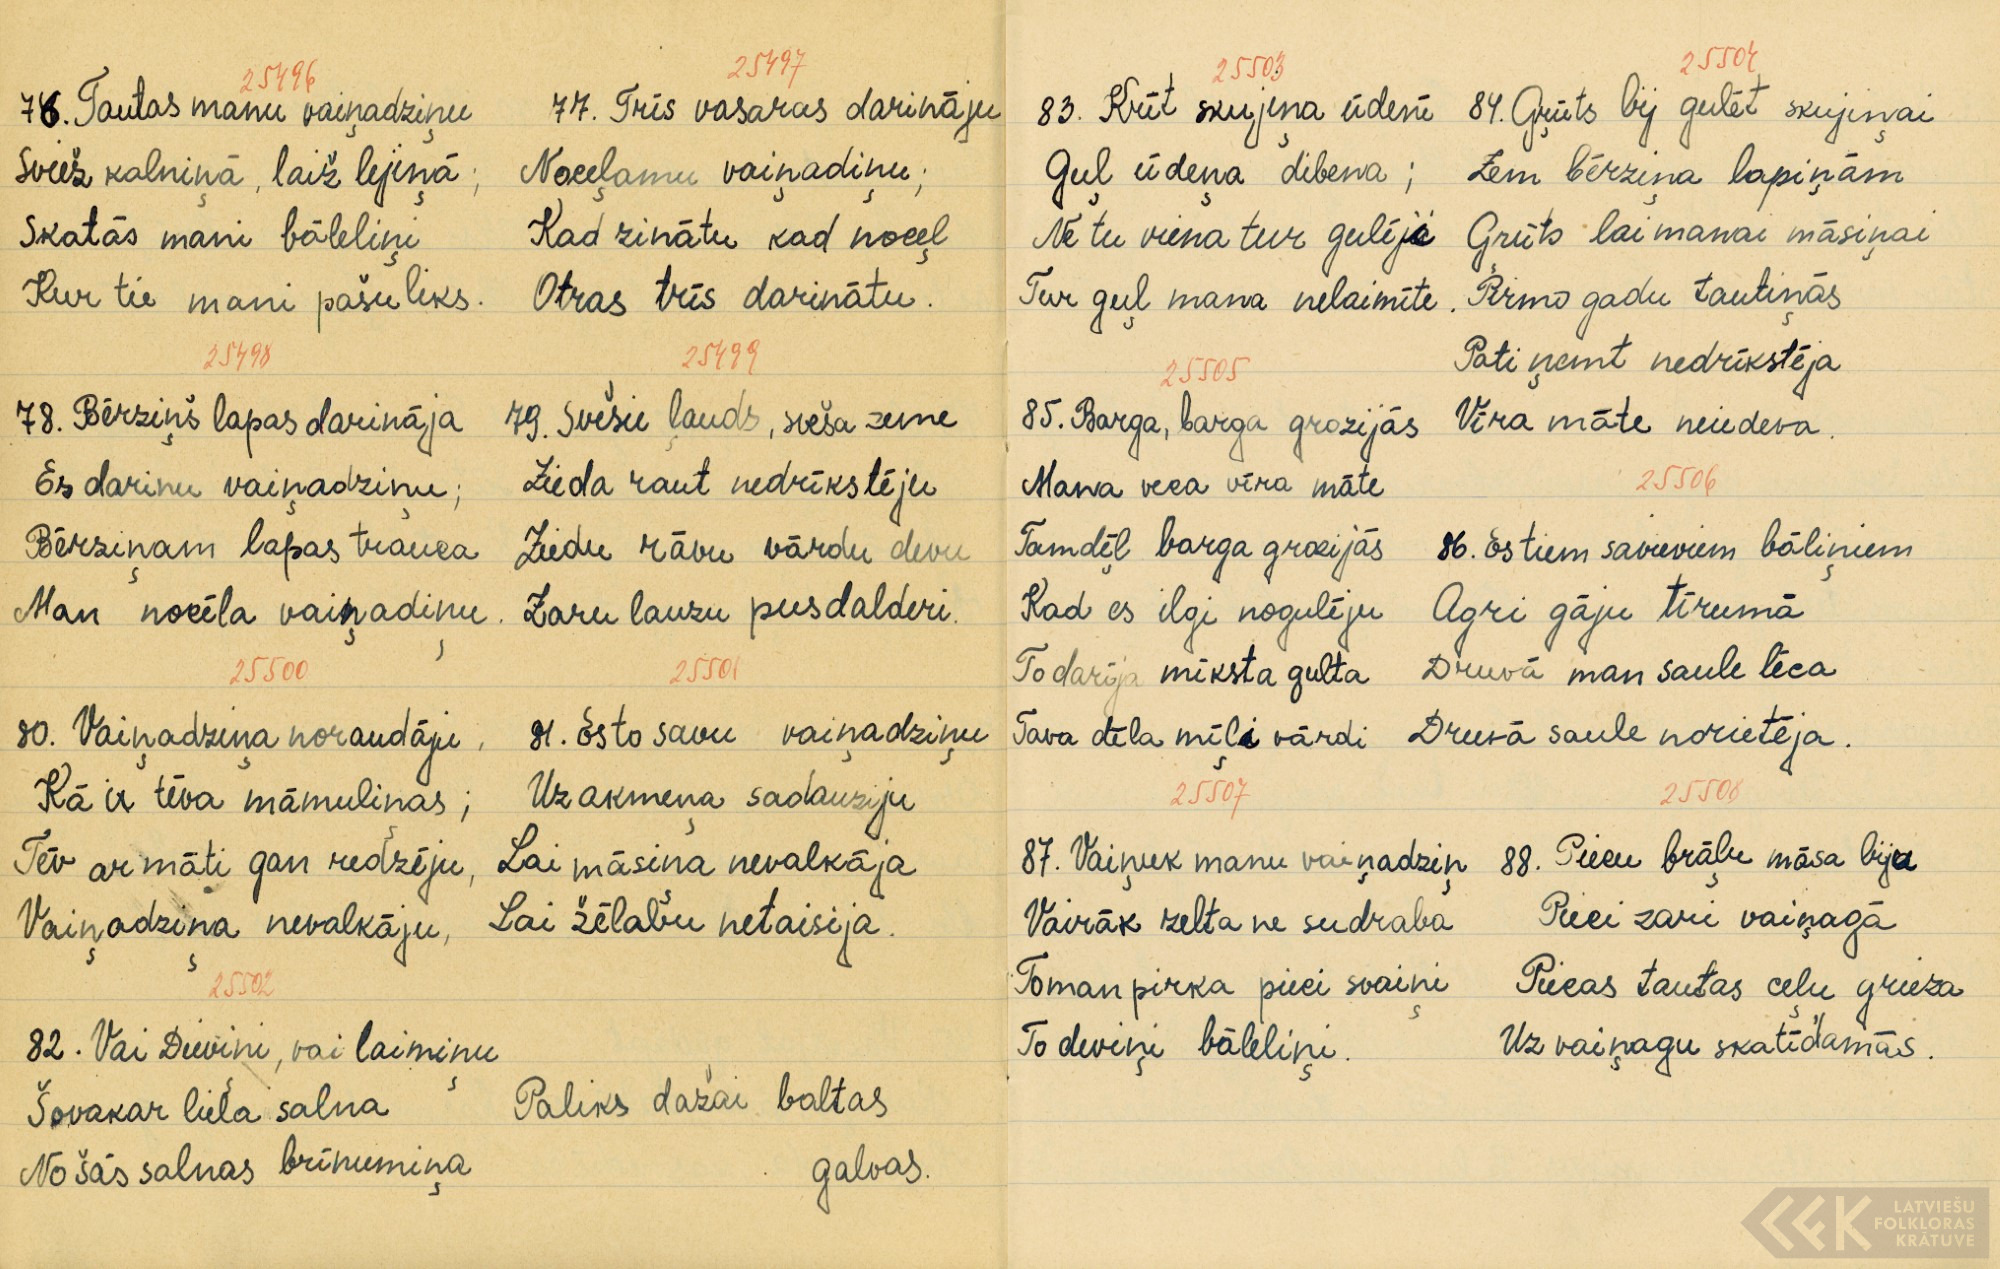 25496
76. Tautas manu vaiņadziņu
Sviež kalniņā, laiž lejiņā;
Skatās mani bāleliņi
Kur tie mani pašu liks.
25497
77. Trīs vasaras darināju
Noceļamu vaiņadiņu;
Kad zinātu kad noceļ
Otras trīs darinātu.
25498
78. Bērziņš lapas darināja
Es darinu vaiņadziņu;
Bērziņam lapas trauca
Man nocēla vaiņadiņu.
25499
79. Svešie ļauds, sveša zeme
Zieda raut nedrīkstēju
Ziedu rāvu vārdu devu
Zaru lauzu pusdalderi.
25500
80. Vaiņadziņa noraudāju,
Kā ix tēva māmuliņas;
Tēv ar māti gan redzēju,
Vaiņadziņa nevalkāju,
25501
81. Es to savu vaiņadziņu
Uz akmeņa sadauziju
Lai māsiņa nevalkāja
Lai žēlabu netaisija.
25502
82. Vai Dieviņi, vai laimiņu
Šovakar liela salna
No šās salnas brīnumiņa
Paliks dažai baltas
galvas.
25503
83. Krīt skujiņa ūdenī
Guļ ūdeņa dibena;
Ne tu viena tur gulēji
Tur guļ mana nelaimīte.
25504
84. Gŗūts bij gulēt skujiņai
Zem bērziņa lapiņām
Gŗūts lai manai māsiņai
Pirmo gadu tautiņās
Pati ņemt nedrīkstēja
Vīra māte neiedeva.
25505
85. Barga, barga grozijās
Mana veca vīra māte
Tamdēļ barga grozijās
Kad es ilgi nogulēju
To darija mīksta gulta
Tava dēla mīļi vārdi
25506
86. Es tiem savieviem bāliņiem
Agri gāju tīrumā
Druvā man saule lēca
Druvā saule norietēja.
25507
87. Vaiņuk manu vaiņadziņ
Vairāk zelta ne sudraba
To man pirka pieci svaiņi
To deviņi bāleliņi.
25508
88. Piecu brāļu māsa biju
Pieci zari vaiņagā
Piecas tautas ceļu grieza
Uz vaiņagu skatīdamās.
LATVIEŠU
FOLKLORAS
KRĀTUVE